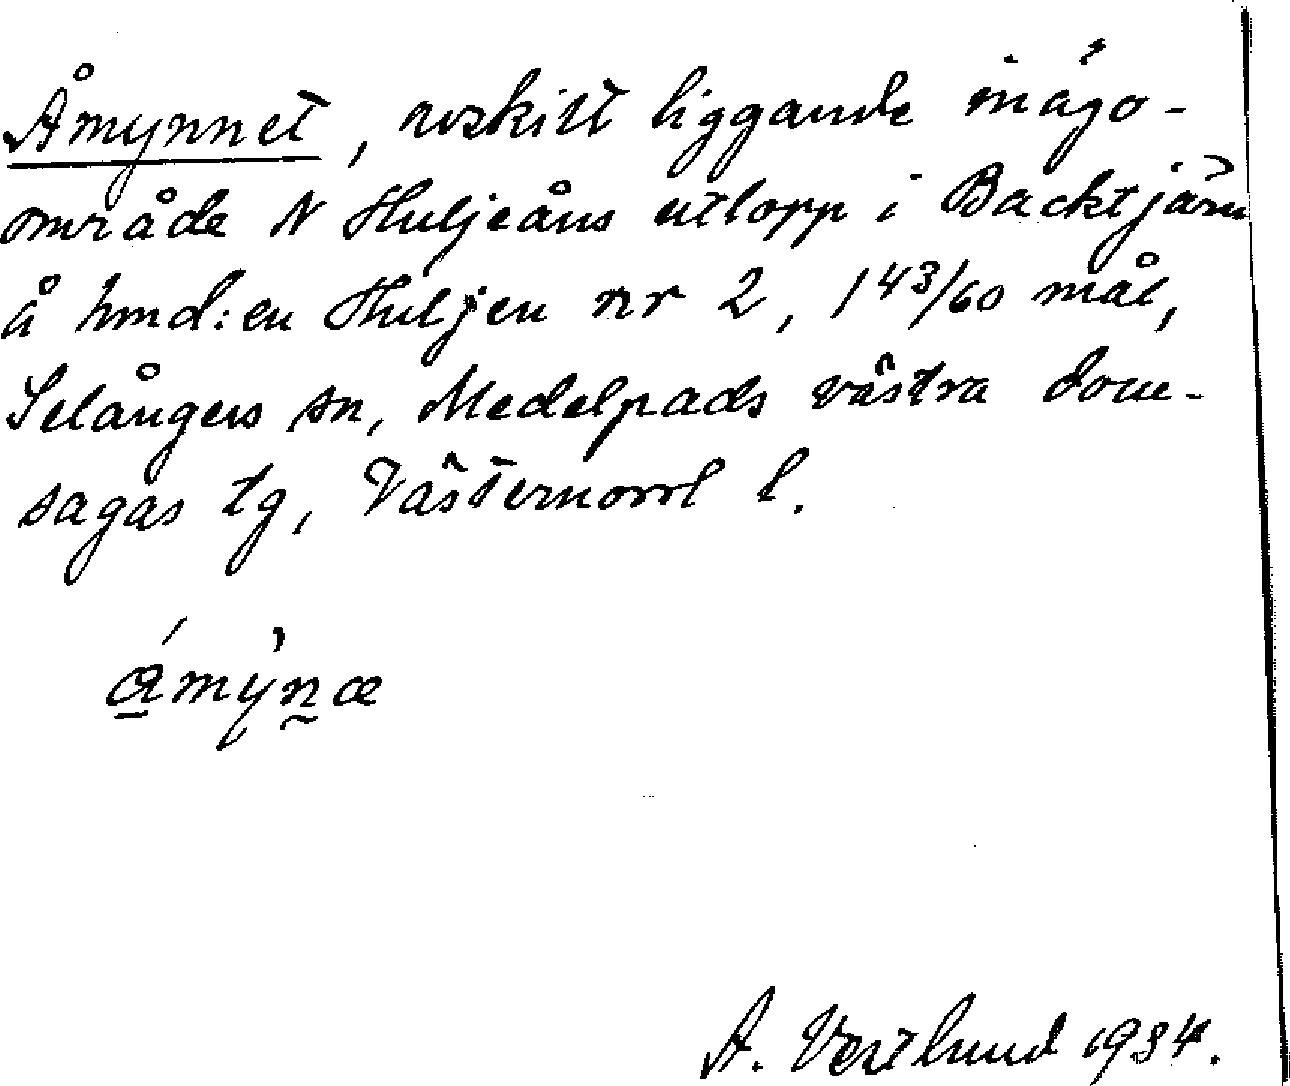 Åmynnet, avskilt liggande inägo-
område N Huljeåns utlopp i Backtjärn
å hmd:en Huljen nr 2, 1 43/60 mål,
Selångers sn, Medelpads västra dom-
sagas tg, Västernorrl l.
A. Vestlund 1934.